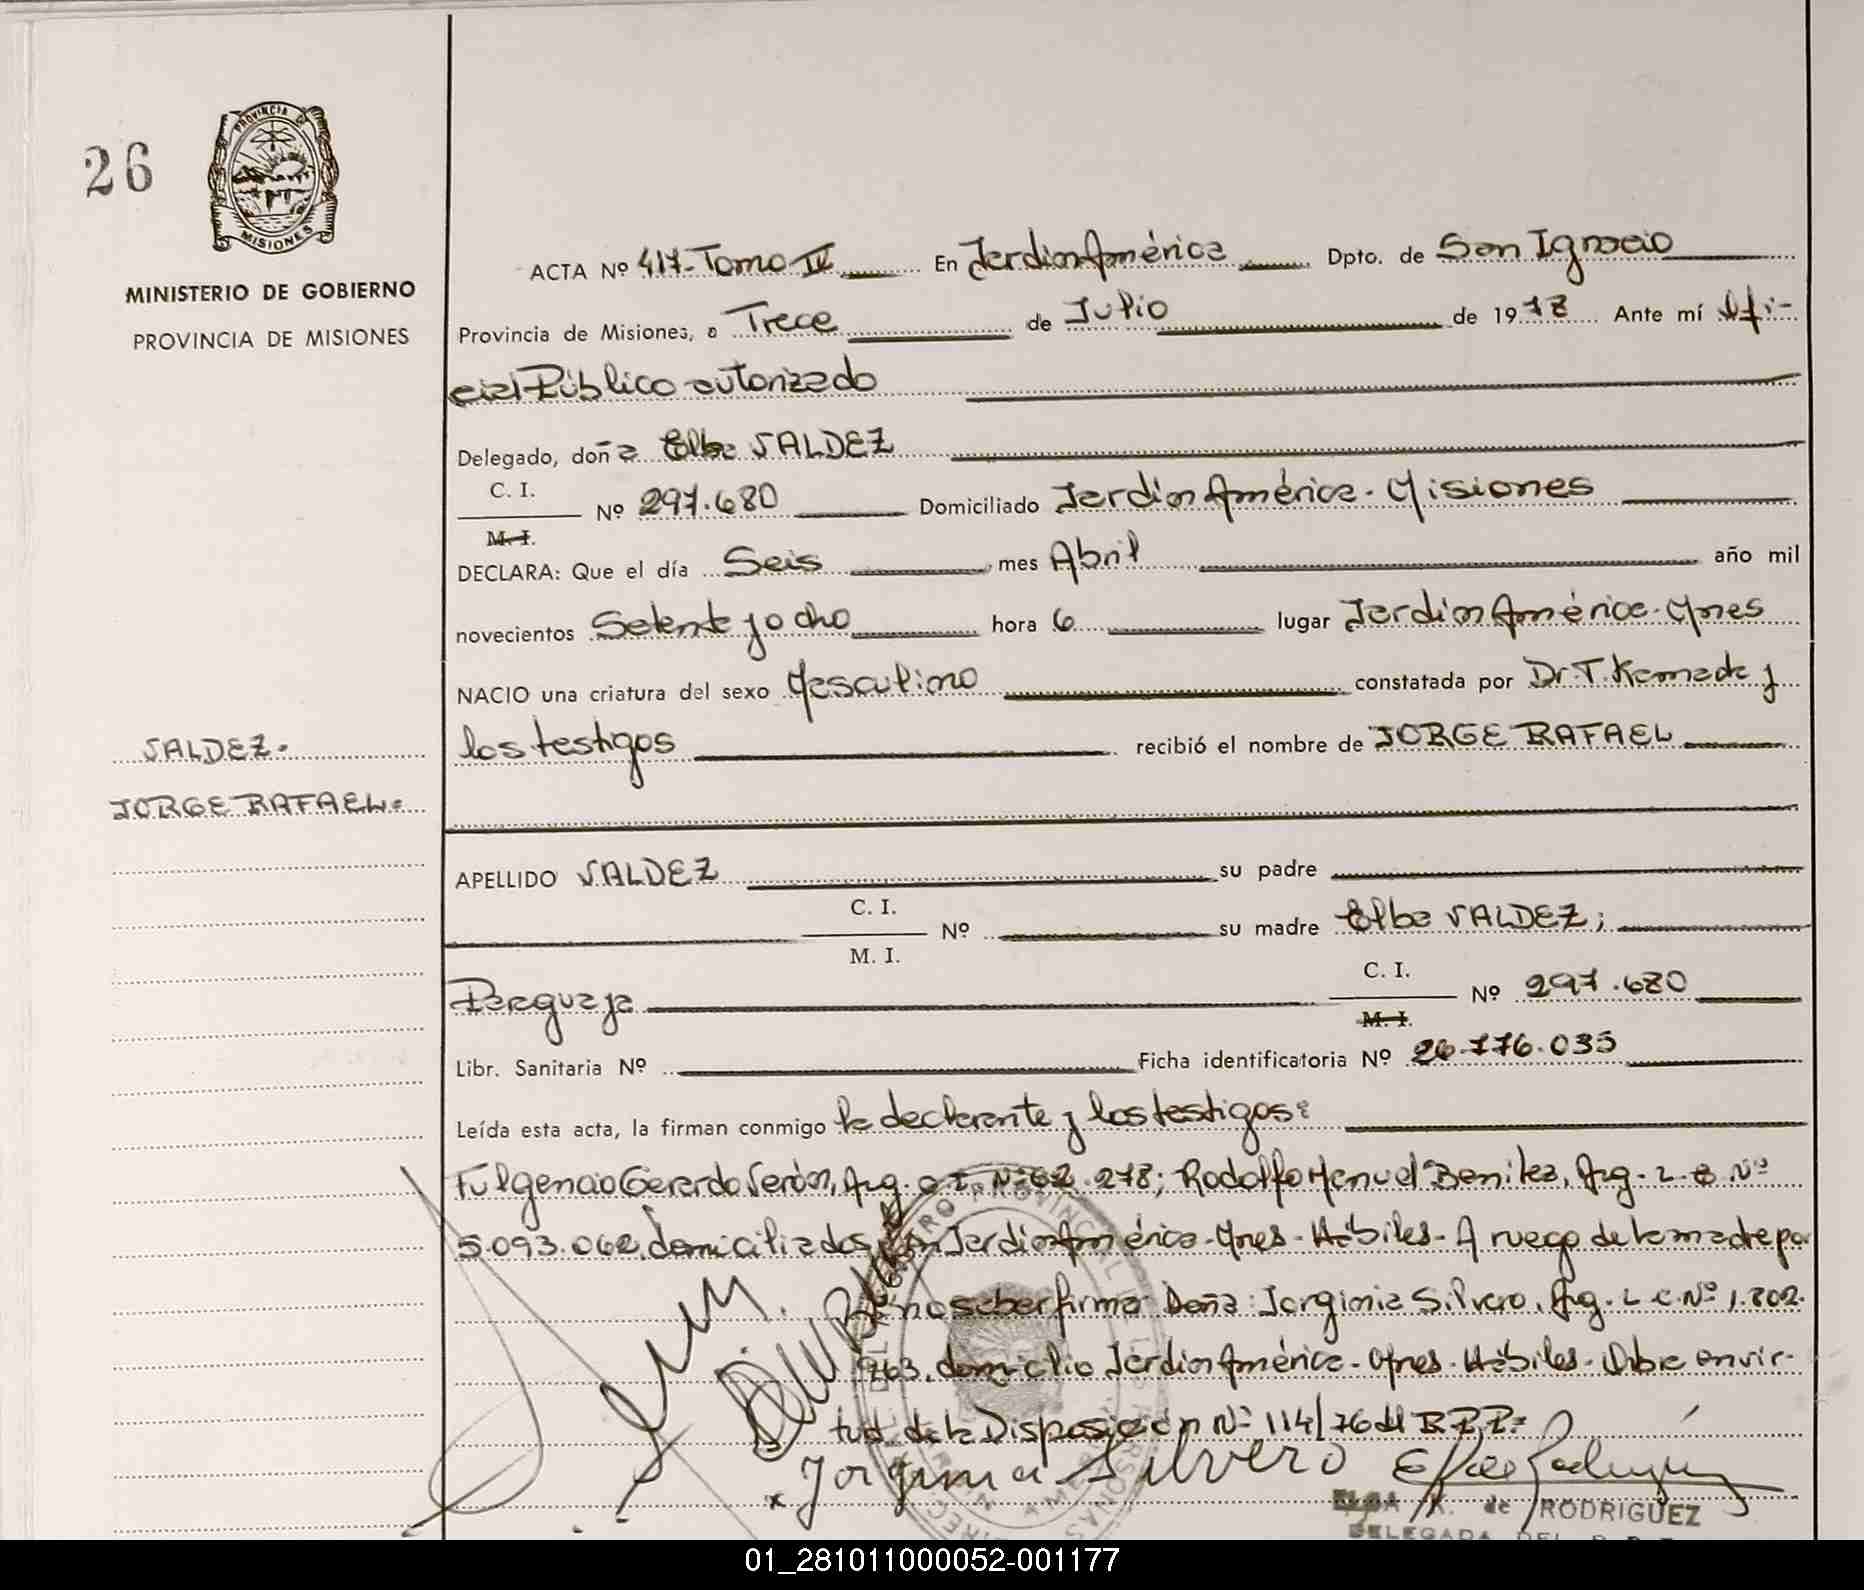 26
PROVINCIA DE
MISIONES
MINISTERIO DE GOBIERNO
PROVINCIA DE MISIONES
ACTA Nº 417-Tomo IV En Jardin América Dpto. de San Ignacio
Provincia de Misiones, a Trece de Julio de 1978 Ante mí Ofi-
cial Público autorizado
Delegado, doña Elba VALDEZ
C. I.
Nº 297.680 Domiciliado Jardin América - Misiones
M. I.
DECLARA: Que el día Seis mes Abril año mil
novecientos Setenta y ocho hora 6 lugar Jardin América - Mnes
NACIO una criatura del sexo Masculino constatada por Dr. T. Kamada y
los testigos recibió el nombre de JORGE RAFAEL
VALDEZ.
JORGE RAFAEL.
APELLIDO VALDEZ su padre
C. I.
Nº su madre Elba VALDEZ;
M. I.
Paraguaya C. I. Nº 297.680
M. I.
Libr. Sanitaria Nº Ficha identificatoria Nº 26.776.035
Leída esta acta, la firman conmigo la declarante y los testigos:
Fulgencio Gerardo Serón, Arg. C. I. Nº 62.278; Rodolfo Manuel Benitez, Arg. L. E. Nº
5.093.062, domiciliados en Jardin América - Mnes - Hábiles - A ruego de la madre por
no saber firmar Doña: Jorginia Silvero, Arg. L. C. Nº 1.802.
963, domicilio Jardin América - Mnes - Hábiles - Obra en vir-
tud de la Disposición Nº 114/76 del R.P.P.
Jorginia Silvero
ELSA K. de RODRIGUEZ
DELEGADA DEL R. P.
01_281011000052-001177